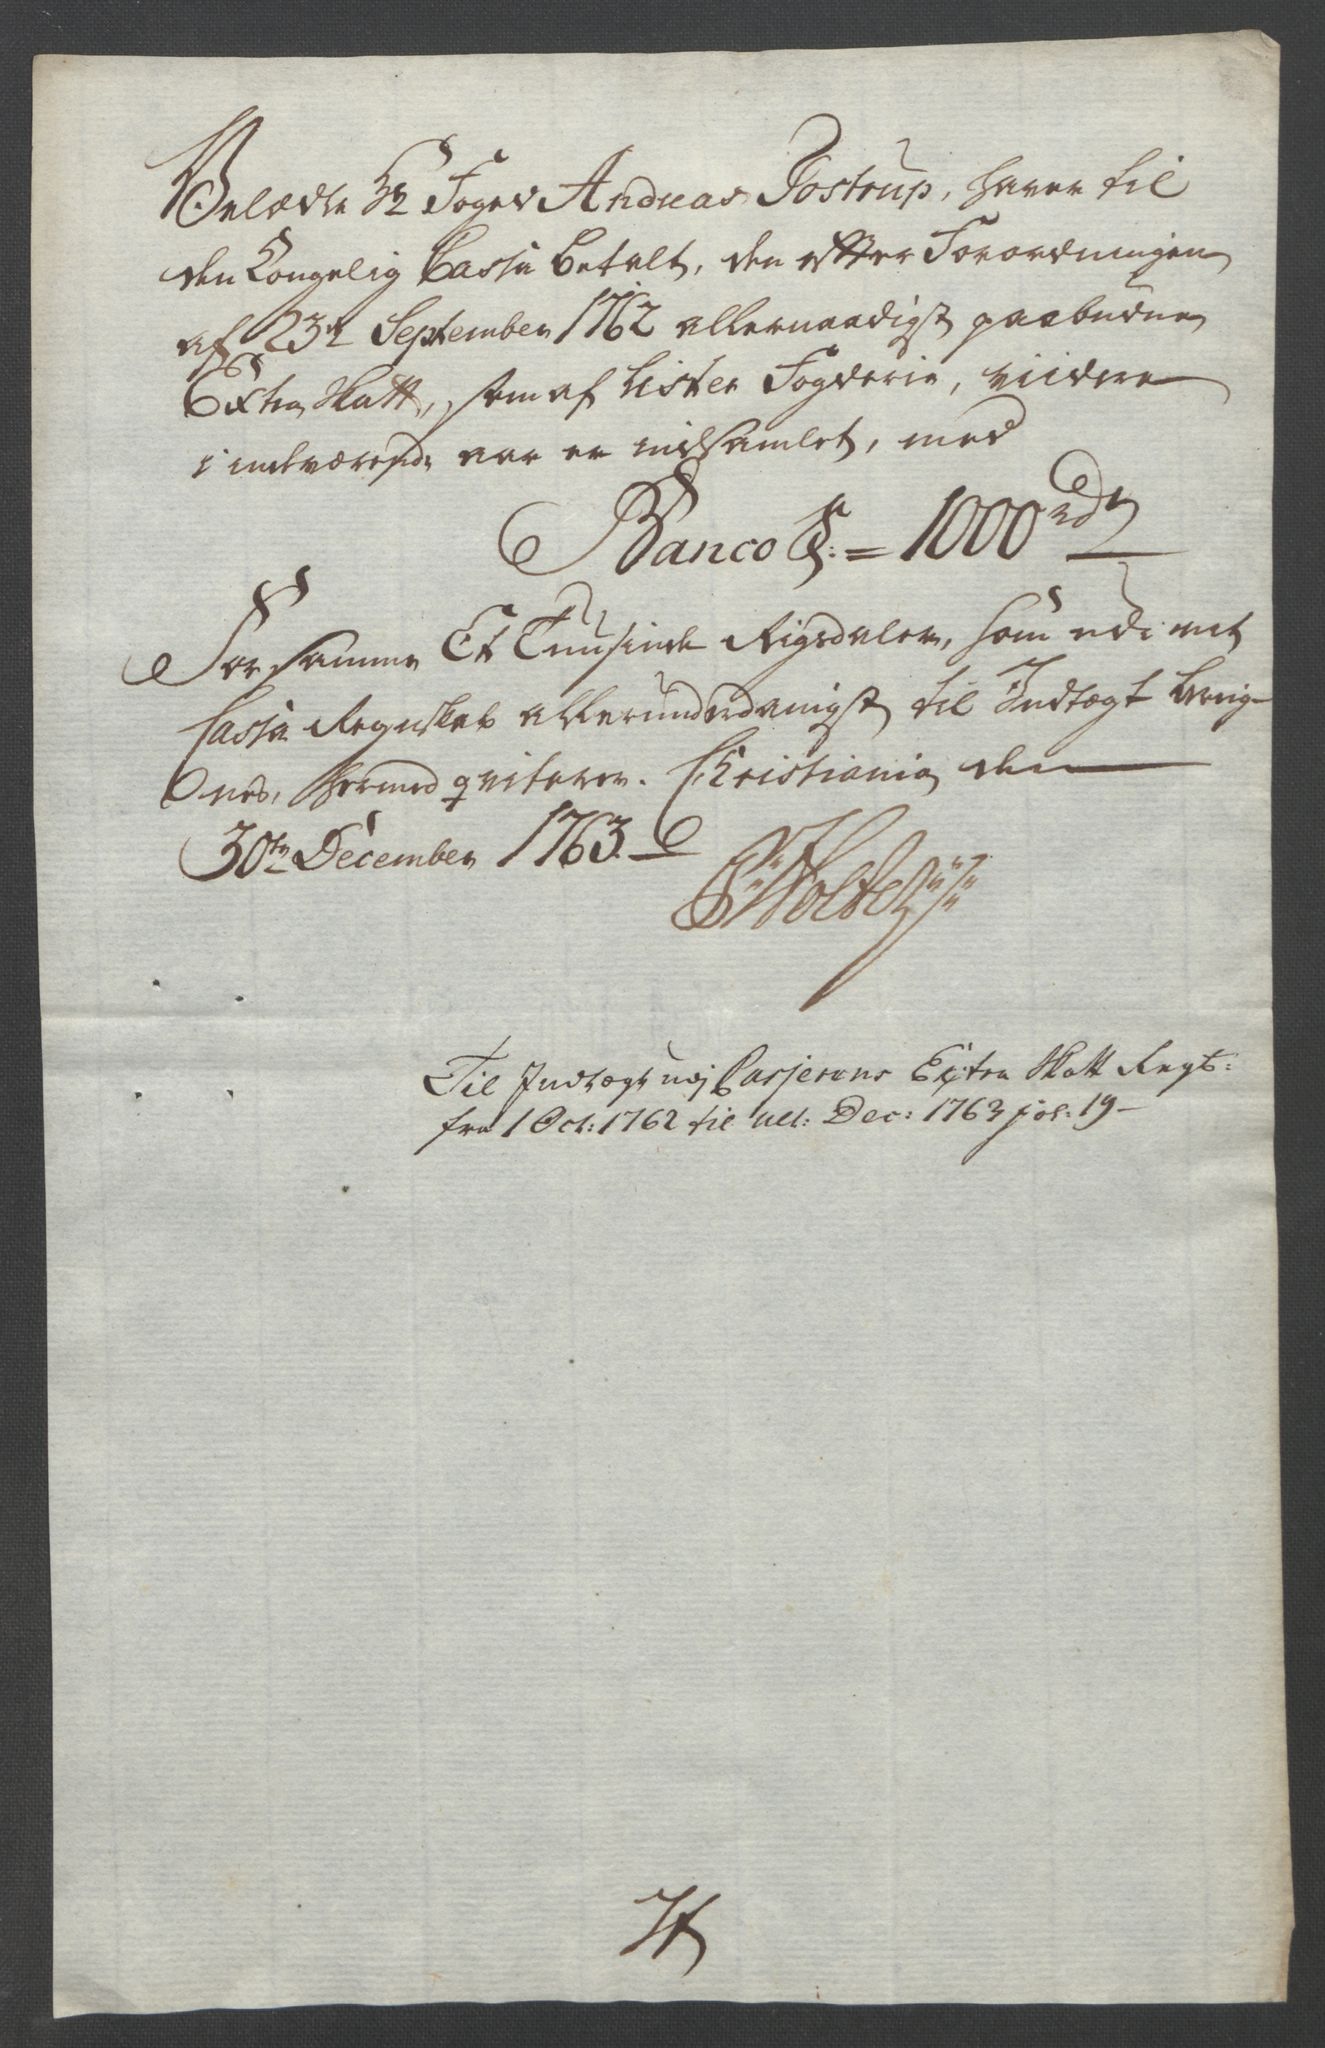 Velædle Hr Foged Andreas Tostrup, haver til
den Kongelig Cassa betalt, den efter Forordningen
af 23de September 1762 allernaadigst paabudne
Extra Skatt, som af Lister Fogderie, viidere
i indværende aar er indsamlet, med
Banco S: = 1000 rdr
For samme Et Tuusinde Rigsdaler, som udi mit
Cassa Regnskab allerunderdanigst til Indtægt bereg-
nes, hermed qviterer. Christiania den
30te December 1763.
Til Indtægt udj Casserens Extra Skatt Regb:
fra 1 Oct: 1762 til ult: Dec: 1763 fol: 19 -